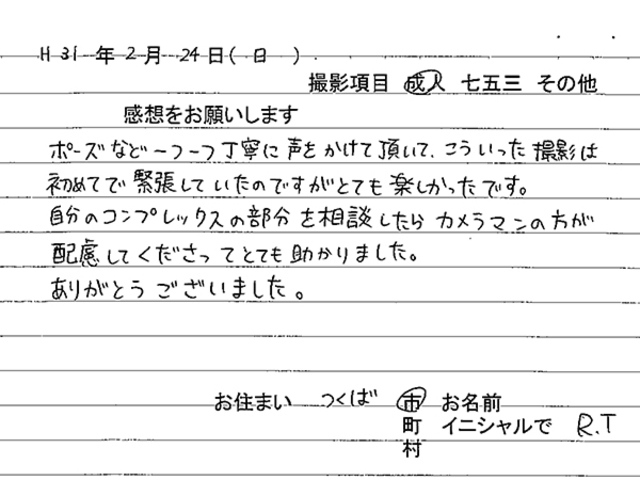 H31年2月24日(日)
撮影項目 成人 七五三 その他
感想をお願いします
ポーズなど一つ一つ丁寧に声をかけて頂いて、こういった撮影は
初めてで緊張していたのですがとても楽しかったです。
自分のコンプレックスの部分を相談したらカメラマンの方が
配慮してくださってとても助かりました。
ありがとうございました。
お住まい つくば 市 お名前
町 イニシャルで R.T
村